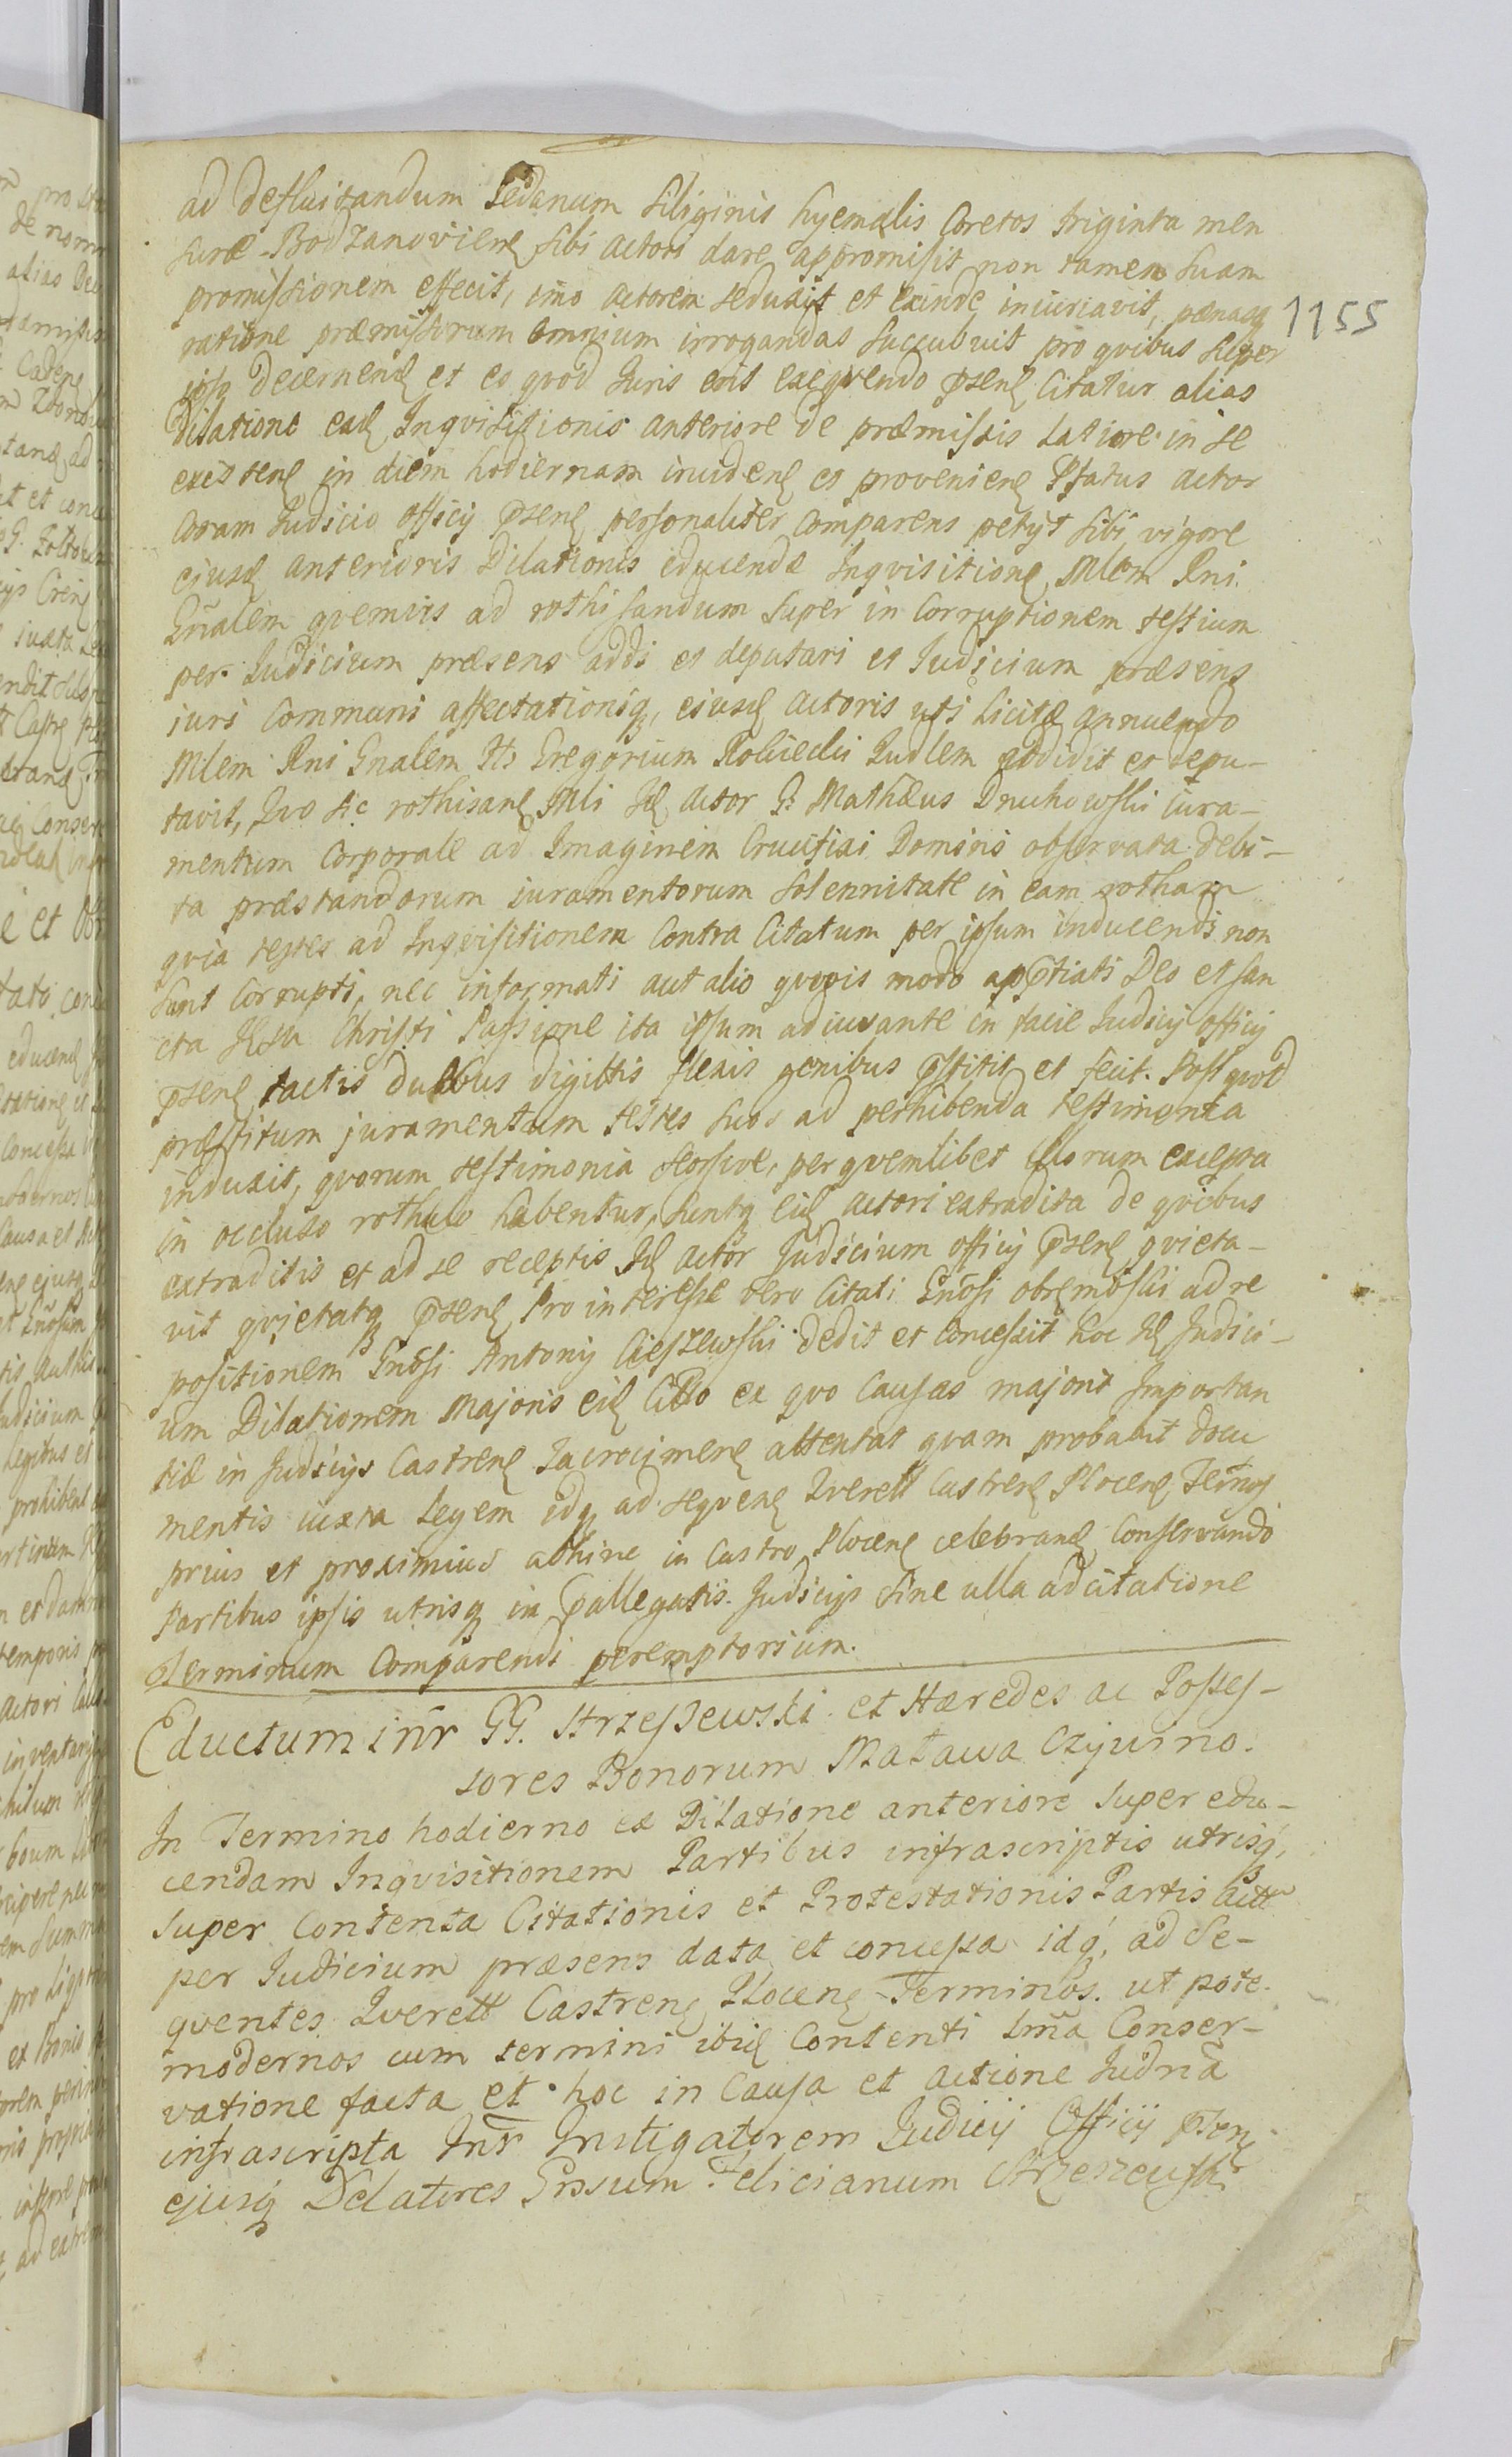 ad defluitandum Gedanum siliginis hyemalis Coretos triginta men
suræ Bodzanovien sibi actori dare appromisit non tamen suam
promissionem effecit, imo actorem seduxit et exinde iniuriavit, pænasq
1155
ratione præmissorum omnium irrogandas succubuit pro qvibus super
ipso decernend et eo qvod Juris erit exeqvendo psens Citatur alias
Dilatione ead Inqvisitionis anteriore de præmissis latiore in se
existen in diem hodiernam inciden et provenien Pfatus actor
Coram Judicio officij psen personaliter Comparens petijt sibi vigore
eiusd anterioris Dilationis educendæ Inqvisitione Mlem Rni
Gnalem qvemvis ad rothisandum super in Corruptionem testium
per Judicium præsens addi et deputari et Judicium præsens
iuri Communi affectationiq, eiusd actoris uti licitæ annuendo
Mlem Rni Gnalem Gregorium Judlem addidit et depu-
tavit, Qvo sic rothisan Mli Id actor G. Mathæus Druchowski iura-
mentum Corporale ad Imaginem Crucifixi Domini observata debi-
ta præstandorum iuramentorum solennitate in eam rotham
qvia testes ad Inqvisitionem Contra Citatum per ipsum inducendi non
sunt Corrupti, nec informati aut alio qvovis modo Deo et san
cta Jesu Christi Passione ita ipsum adiuvante in facie Judicij officij
psen tactis duobus digittis flexis genibus pstitit et fecit. Post qvod
præstitum juramentum testes suos ad perhibenda testimonia
induxit, qvorum testimonia seorsive, per qvemlibet illorum excepta
in occluso rothulo habentur, suntq eid actori extradita de qvibus
extraditis et ad se receptis Id actor Judicium officij psen qvieta-
vit qvietatq psen Pro interesse vero Citati Gnosi ad re
positionem Gnosi Antonij Cieszewski dedit et Concessit hoc Id Judici-
um Dilationem Majoris eid Citto ex qvo Causas majoris Importan
tiæ in Judicijs Castren attentat qvam probabit docu
mentis iuxta Legem idq ad seqven Qverell Castren Plocen Termos
prius et proximius abhinc in Castro Plocen celebrand Conservando
Partibus ipsis utrisq in pallegatis Judicijs sine ulla adcitatione
Terminum Comparendi peremptorium.
Eductum intr GG. Strzeszewski et Hæredes ac Posses-
sores Bonorum Matawa Czyvino.
In Termino hodierno ex Dilatione anteriore super edu-
cendam Inqvisitionem Partibus infrascriptis utrisq,
super Contenta Citationis et Protestationis Partis
per Judicium præsens data et concessa idq, ad se-
qventes Qverell Castren Plocen Terminos ut pote
modernos cum termini ibid Contenti Conser-
vatione facta et hoc in Causa et actione
infrascripta Intr Instigatorem Judicij Officij psen
ejusq Delatores Grosum Felicianum Strzeszewski